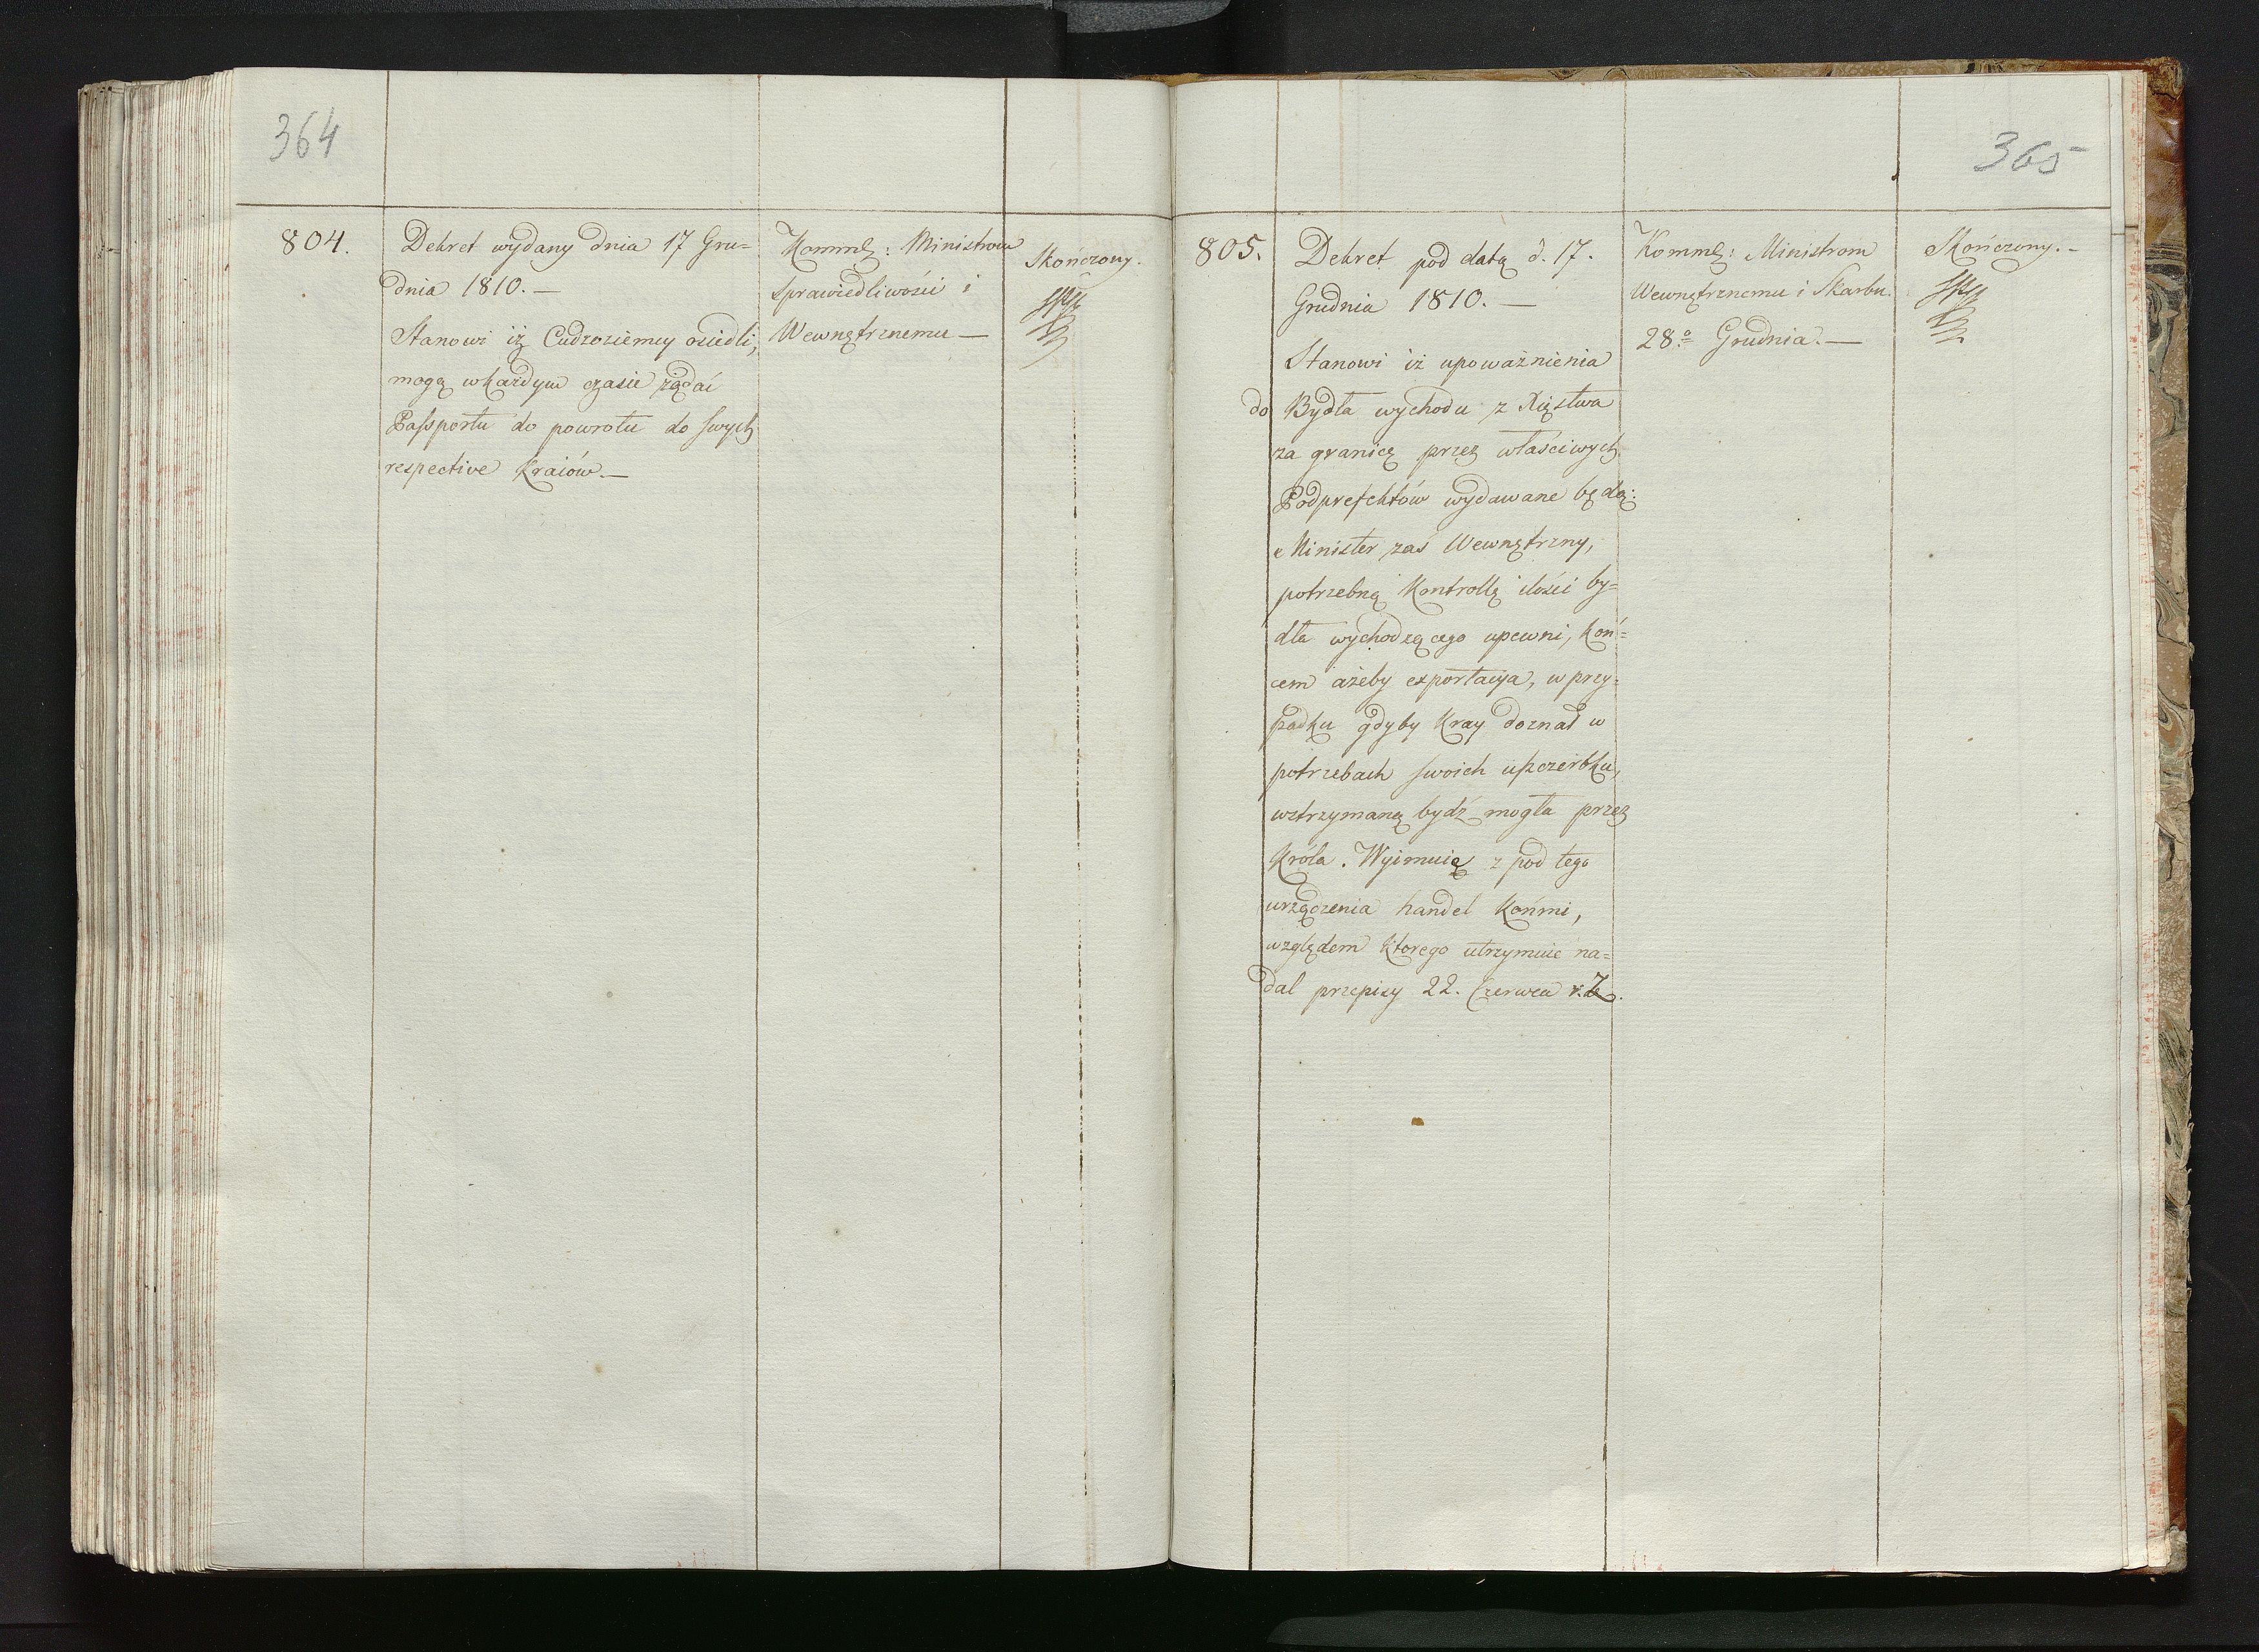 364
804.
Dekret wydany dnia 17 Gru=
dnia 1810. —
Stanowi iż Cudzoziemcy osiedli,
mogą w każdym czasie żądać
Passportu do powrotu do swych
respective Kraiów. —
Ministrom
Sprawiedliwości i
Wewnętrznemu —
Skończony.
365
805.
Dekret pod datą d. 17.
Grudnia 1810. —
Stanowi iż upoważnienia
do Bydła wychodu z Xięstwa
za granicę przez właściwych
Podprefektów wydawane będą:
Minister zaś Wewnętrzny,
potrzebną Kontrollę ilości by=
dła wychodzącego upewni, koń=
cem ażeby exportacya, w przy=
padku gdyby Kray doznał w
potrzebach swoich uszczerbku,
wstrzymaną bydź mogła przez
Króla. Wyimuie z pod tego
urządzenia handel Końmi,
względem ktorego utrzymuie na=
dal przepisy 22. Czerwca
Ministrom
Wewnętrznemu i Skarbu.
28.o Grudnia. —
Skończony. —